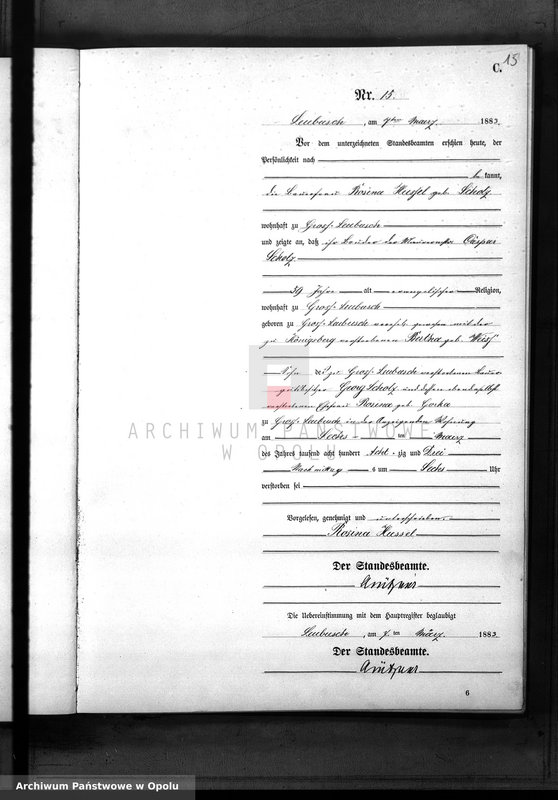 15
C.
Nr. 15.
Leubusch, am 7ten Maerz 1883.
Vor dem unterzeichneten Standesbeamten erschien heute, der
Persönlichkeit nach
be kannt,
die Rosina Hussel geb. Scholz
wohnhaft zu Groß Leubusch
und zeigte an, daß ihr Bruder der Caspar
Scholz
39 Jahre alt evangelischer Religion,
wohnhaft zu Groß Leubusch
geboren zu Groß Leubusch gewesen mit der
zu Königsberg verstorbenen Bertha geb.
Sohn des zu Groß Leubusch verstorbenen
Georg Scholz und dessen
verstorbenen Ehefrau Rosina geb.
zu Groß Leubusch in der Wohnung
am Sechs ten Maerz
des Jahres tausend acht hundert Acht zig und Drei
Nachmittags um Sechs Uhr
verstorben sei
Vorgelesen, genehmigt und unterschrieben
Rosina Hussel
Der Standesbeamte.
Die Uebereinstimmung mit dem Hauptregister beglaubigt
Leubusch, am 7. ten März 1883.
Der Standesbeamte.
6
ARCHIWUM PAŃSTWOWE
W OPOLU
Archiwum Państwowe w Opolu